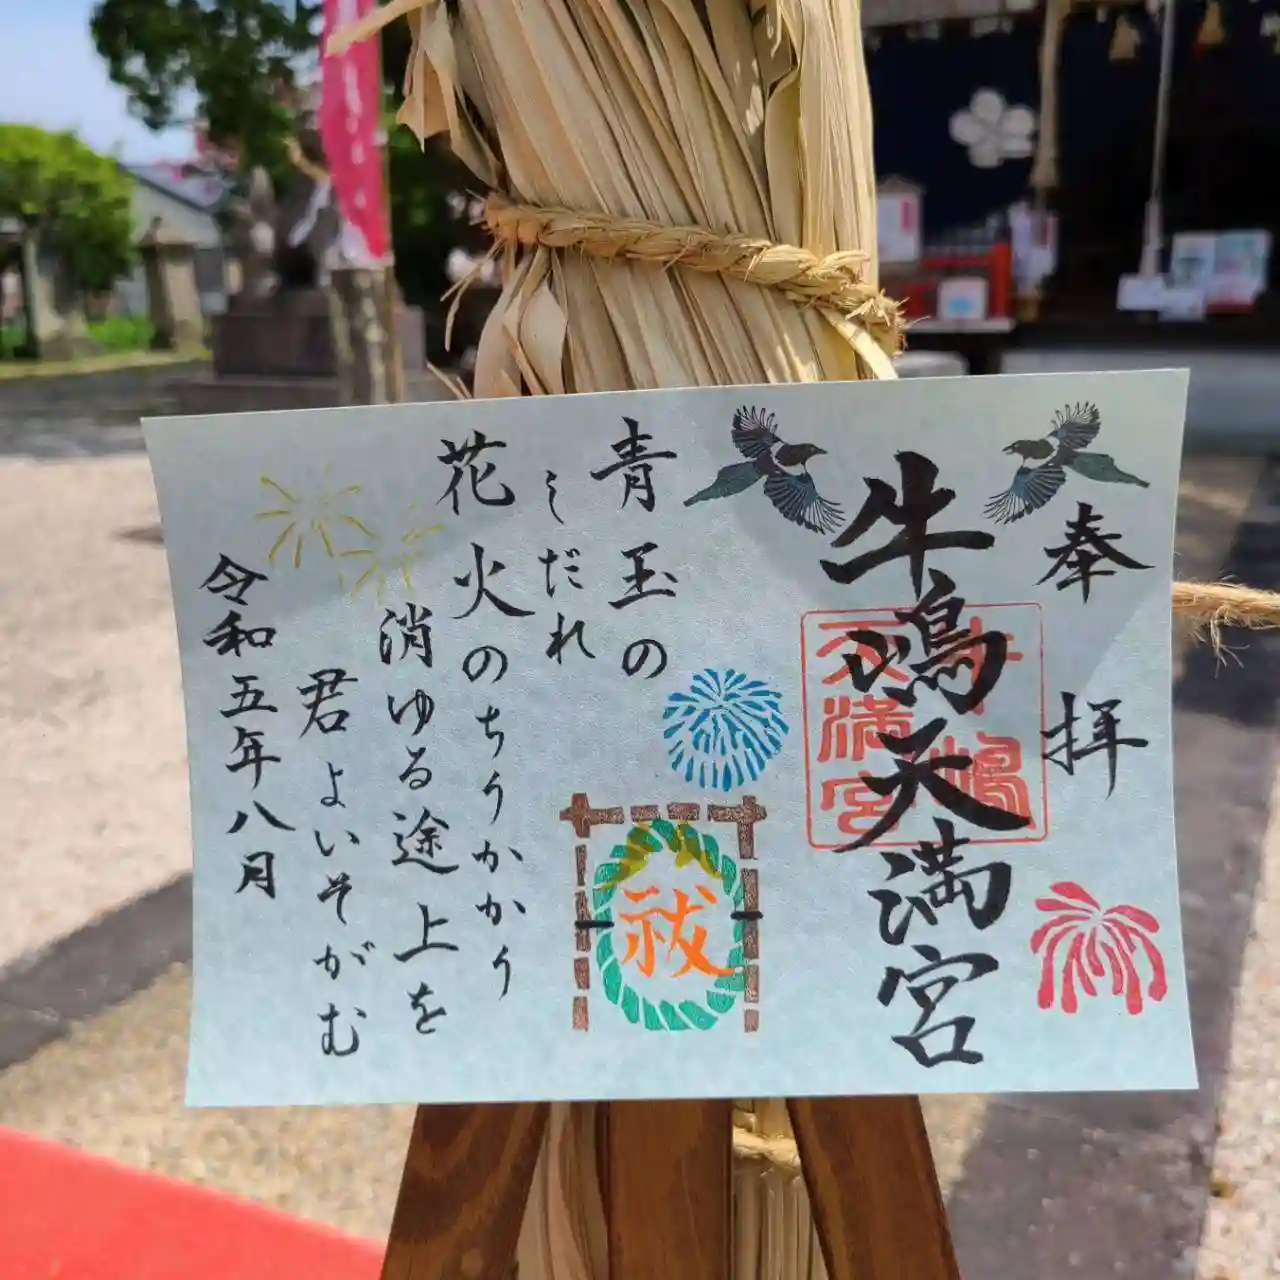 奉拝
牛嶋天満宮
牛嶋
天満宮
青玉の
しだれ
花火のちりかかり
消ゆる途上を
君よいそがむ
令和五年八月
祓